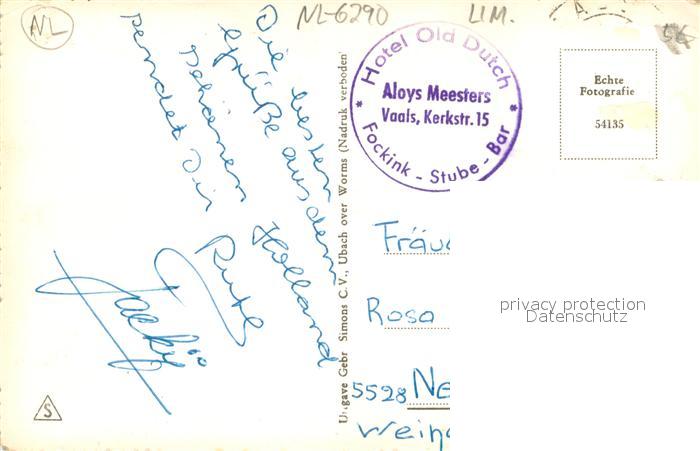 NL
NL-6290
LIM.
A
56
Die besten
Grüße aus dem
schönen Holland
sendet Dir
Ruth
Jacky
Uitgave Gebr Simons C.V., Ubach over Worms (Nadruk verboden)
Hotel Old Dutch
Aloys Meesters
Vaals, Kerkstr. 15
Fockink - Stube - Bar
Echte
Fotografie
54135
Fräu
Rosa
privacy protection
Datenschutz
5528 Ne
Wein
S